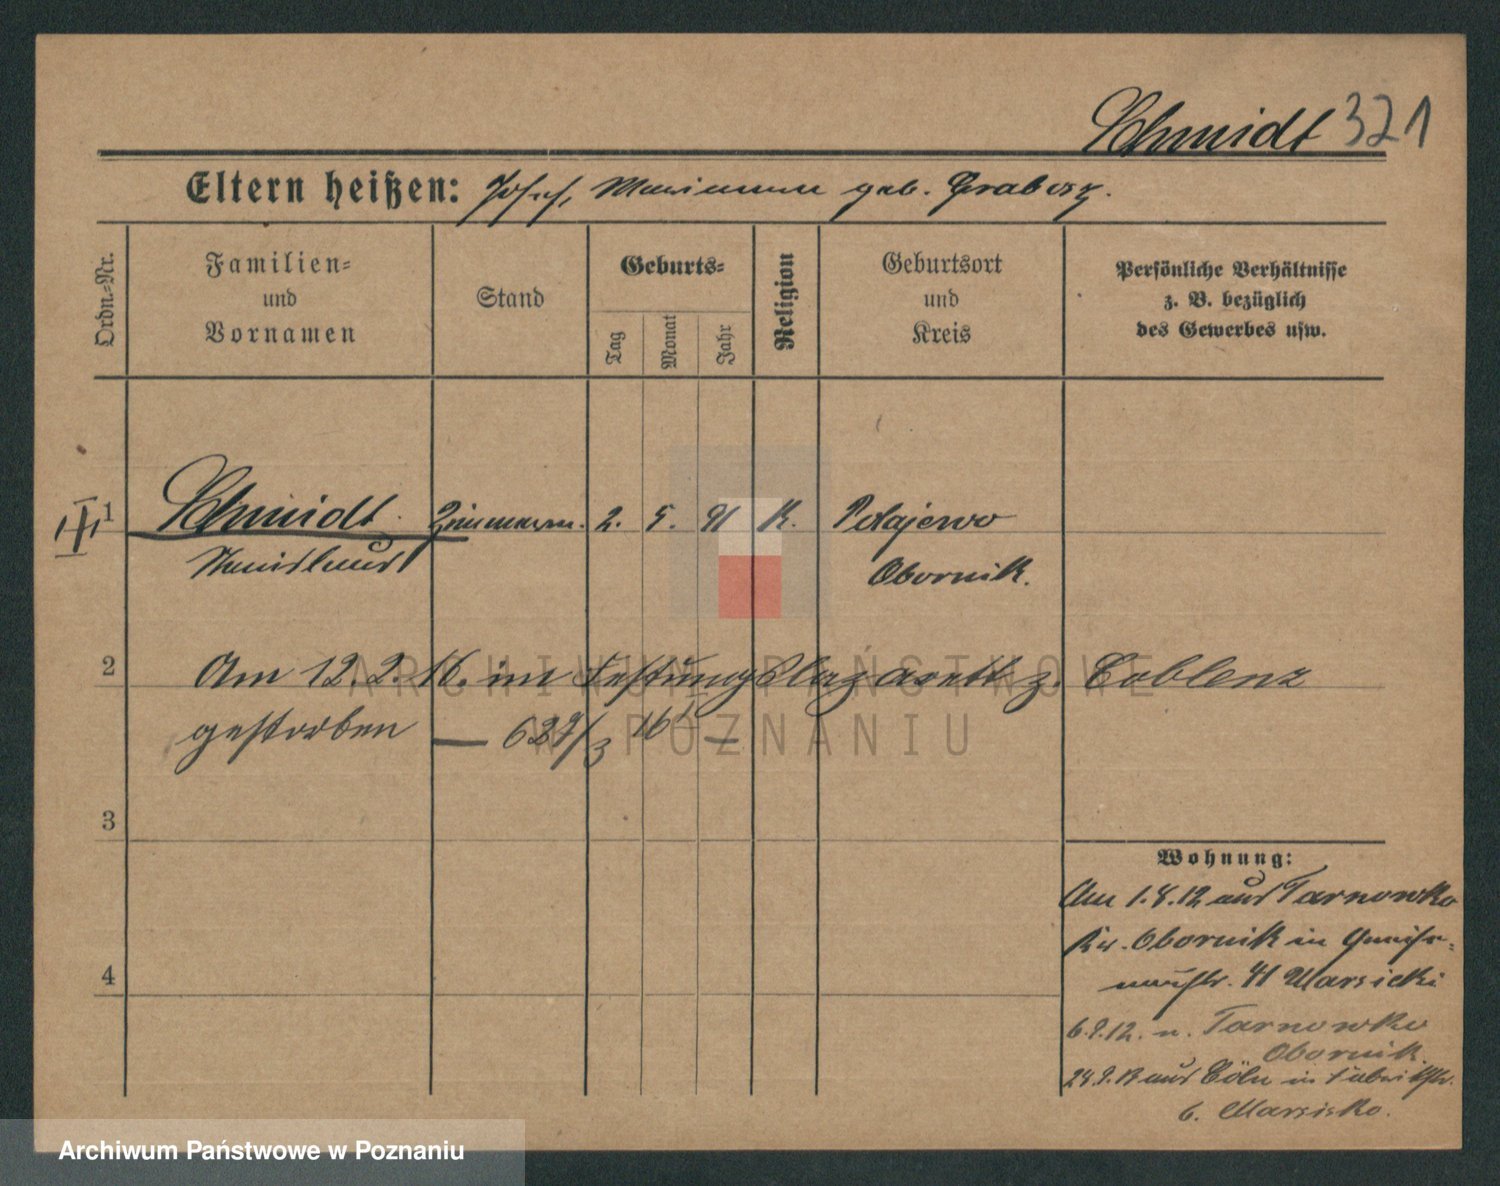 Schmidt 321
Eltern heißen: Josef, Marianna geb. Grabarz.
Ordn.-Nr.
Familien-
und
Vornamen
Stand
Geburts-
Tag
Monat
Jahr
Religion
Geburtsort
und
Kreis
Persönliche Verhältnisse
z. B. bezüglich
des Gewerbes usw.
1 Schmidt Zimmerm. 2. 5. 91 K. Polajewo
Obornik.
2 Am 12.2.16. im Festungslazarett z. Coblenz
gestorben — 627/3 16 —
3
4
Wohnung:
Am 1.8.12 aus Tarnowko
Kr. Obornik in Gneise-
naustr. 41 Marsicki
6.9.12. n. Tarnowko
Obornik.
24.9.13 aus Cöln in Fabrikstr.
6. Marsisko.
ARCHIWUM PAŃSTWOWE
W POZNANIU
Archiwum Państwowe w Poznaniu